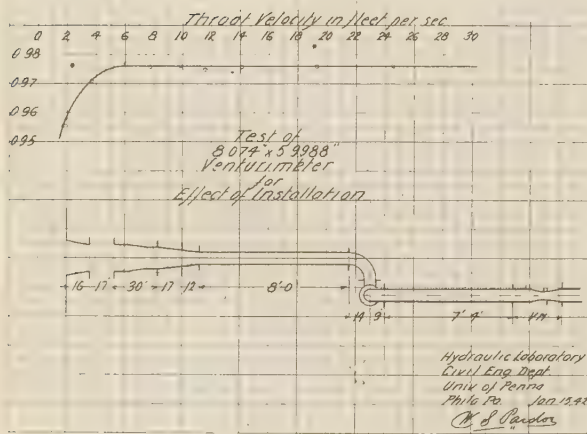 Throat Velocity in feet per sec
0 2 4 6 8 10 12 14 16 18 20 22 24 26 28 30
0.98
0.97
0.96
0.95
Test of
8.074" x 5.9988"
Venturimeter
for
Effect of Installation
16 17 30" 17 12 8'-0 14 9 7'-4"
Hydraulic Laboratory
Civil Eng Dept.
Univ of Penna
Phila Pa. Jan 15,42
W S Pardoe